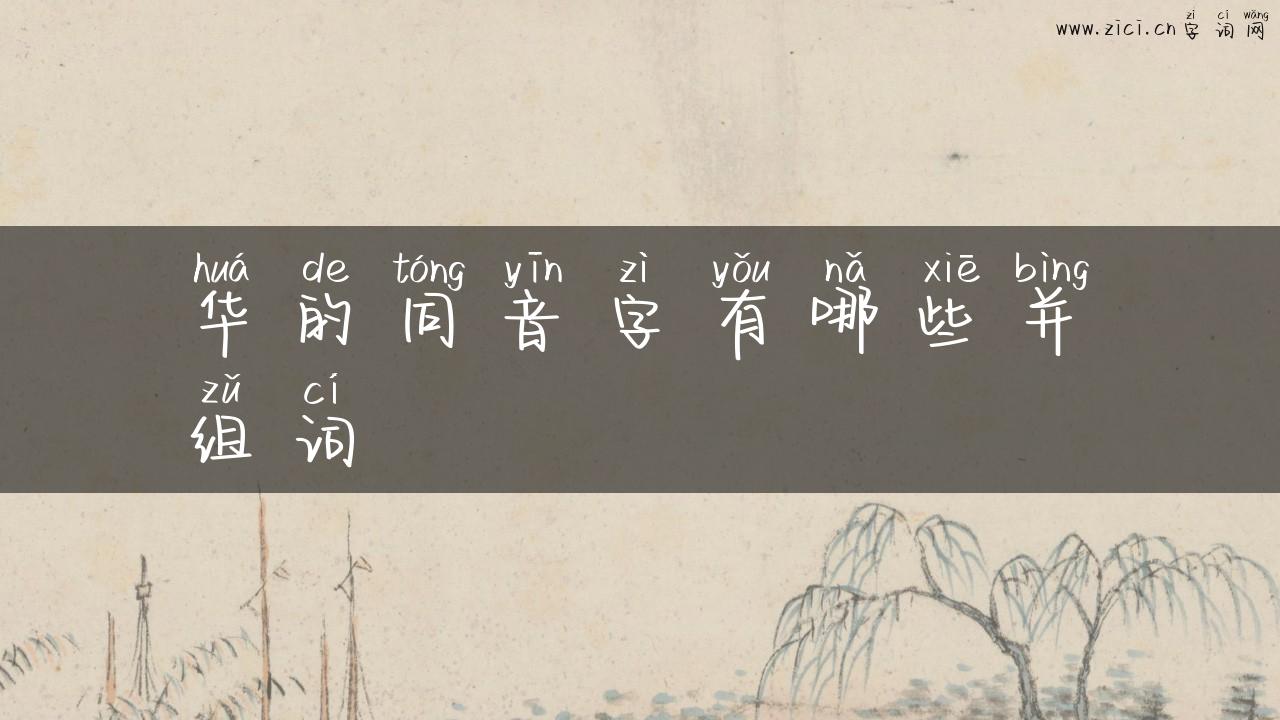 zì cí wǎng
www.zici.cn 字 词 网
huá de tóng yīn zì yǒu nǎ xiē bìng
华 的 同 音 字 有 哪 些 并
zǔ cí
组 词